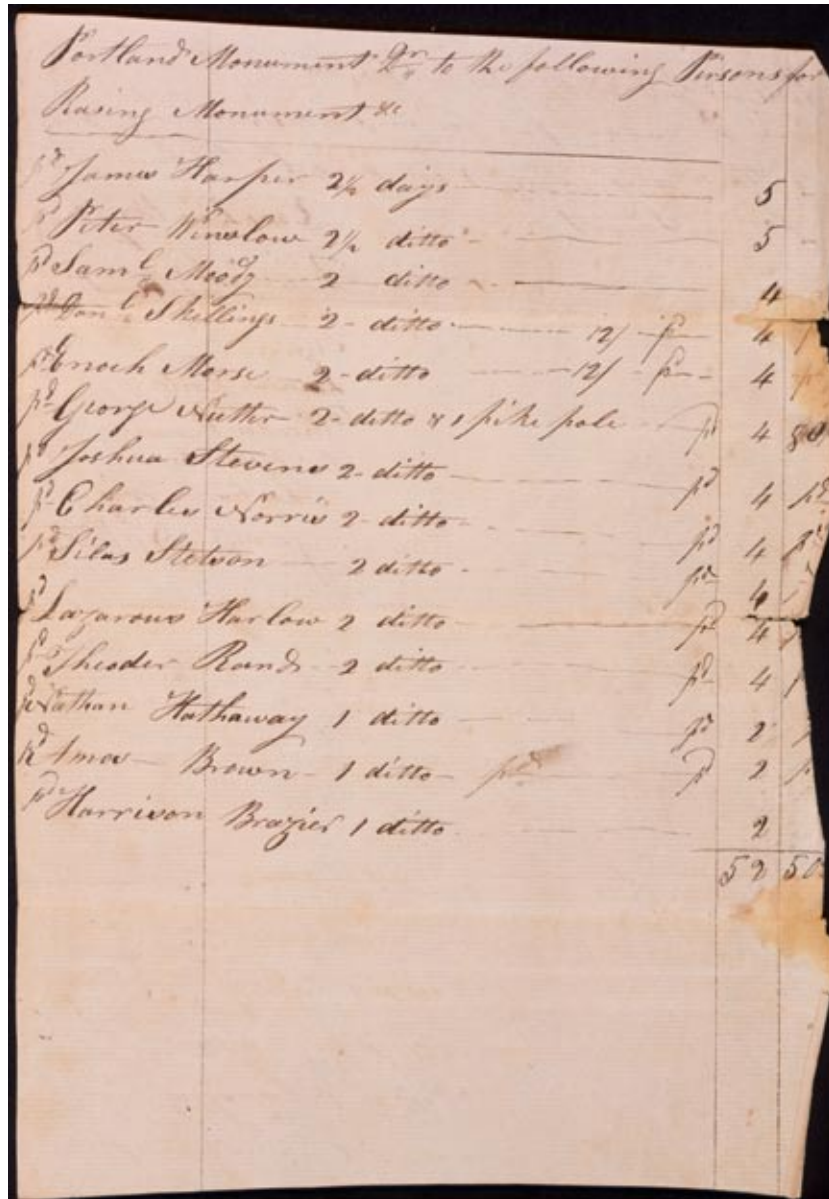 Portland Monument Dr to the following Persons for
Rasing Monument &c
pd James Harper 2½ days 5
pd Peter Winslow 2½ ditto 5
pd Saml Moody 2 ditto 4
pd Danl Skillings 2 ditto 12/ pd 4
pd Enoch Morse 2 ditto 12/ pd 4
pd George Nutter 2 ditto & 1 pike pole pd 4
pd Joshua Stevens 2 ditto pd 4 pd
pd Charles Norris 2 ditto pd 4
pd Silas Stetson 2 ditto pd 4
pd Lazarous Harlow 2 ditto pd 4
pd Theoder Rand 2 ditto pd 4
pd Nathan Hathaway 1 ditto pd 2
pd Amos Brown 1 ditto pd pd 2
pd Harrison Brazier 1 ditto 2
52 50